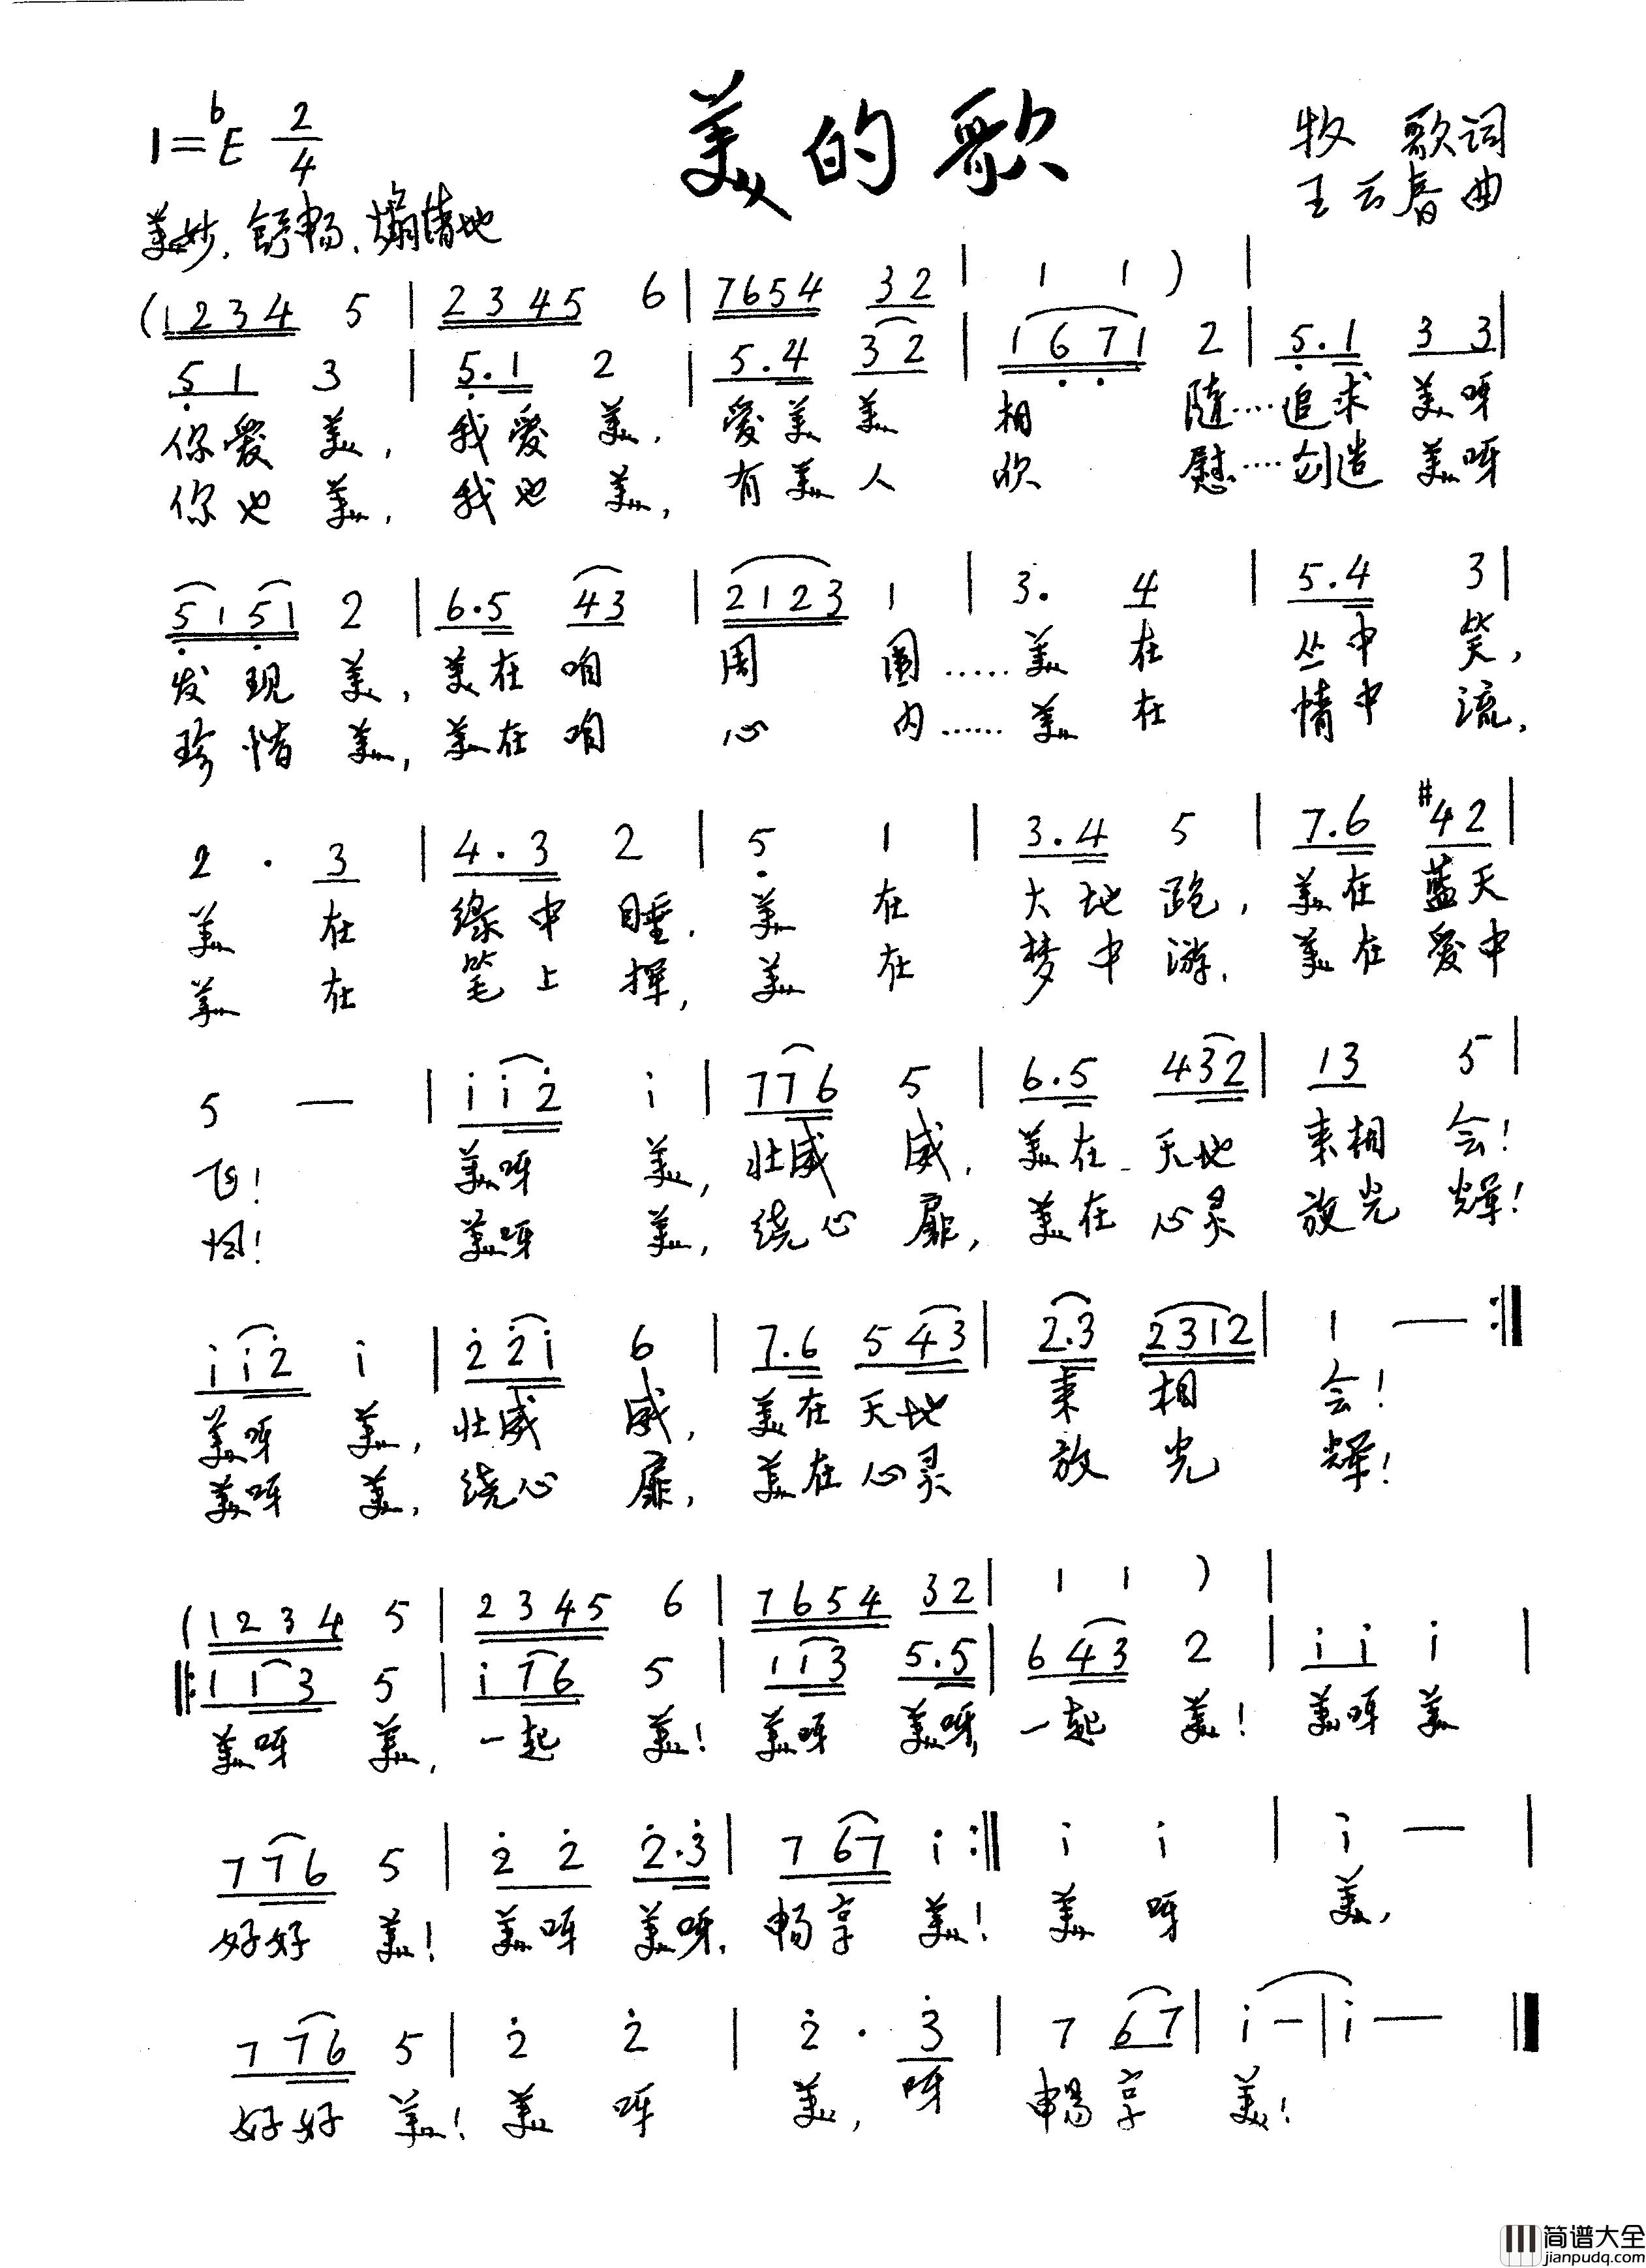 美的歌
1=♭E 2/4
牧 歌词
王云春 曲
美妙、舒畅、煽情地
(1234 5 | 2345 6 | 7654 32 | 1 1 ) |
51 3 | 5.1 2 | 5.4 32 | 1671 2 | 5.1 33 |
你爱美,我爱美,爱美美相随……追求美呀
你也美,我也美,有美人欣慰……创造美呀
5151 2 | 6.5 43 | 2123 1 | 3. 4 | 5.4 3 |
发现美,美在咱周围……美在丛中笑,
珍惜美,美在咱心内……美在情中流,
2. 3 | 4.3 2 | 5 1 | 3.4 5 | 7.6 #42 |
美在绿中睡,美在大地跑,美在蓝天
美在笔上挥,美在梦中游,美在爱中
5 — | i i 2 i | 7 7 6 5 | 6.5 432 | 13 5 |
飞! 美呀美,壮威威,美在天地来相会!
美呀美,绕心扉,美在心灵放光辉!
i i 2 i | 2 2 i 6 | 7.6 543 | 2.3 2312 | 1 — :‖
美呀美,壮威威,美在天地来相会!
美呀美,绕心扉,美在心灵放光辉!
(1234 5 | 2345 6 | 7654 32 | 1 1 ) |
‖: 113 5 | i76 5 | 113 5.5 | 643 2 | i i i |
美呀美,一起美!美呀美呀,一起美!美呀美
776 5 | 2 2 2.3 | 767 i :‖ i i | i — |
好好美!美呀美呀,畅享美!美呀美,
776 5 | 2 2 | 2. 3 | 7 67 | i — | i — ‖
好好美!美呀美,呀畅享美!
简谱大全
jianpudq.com